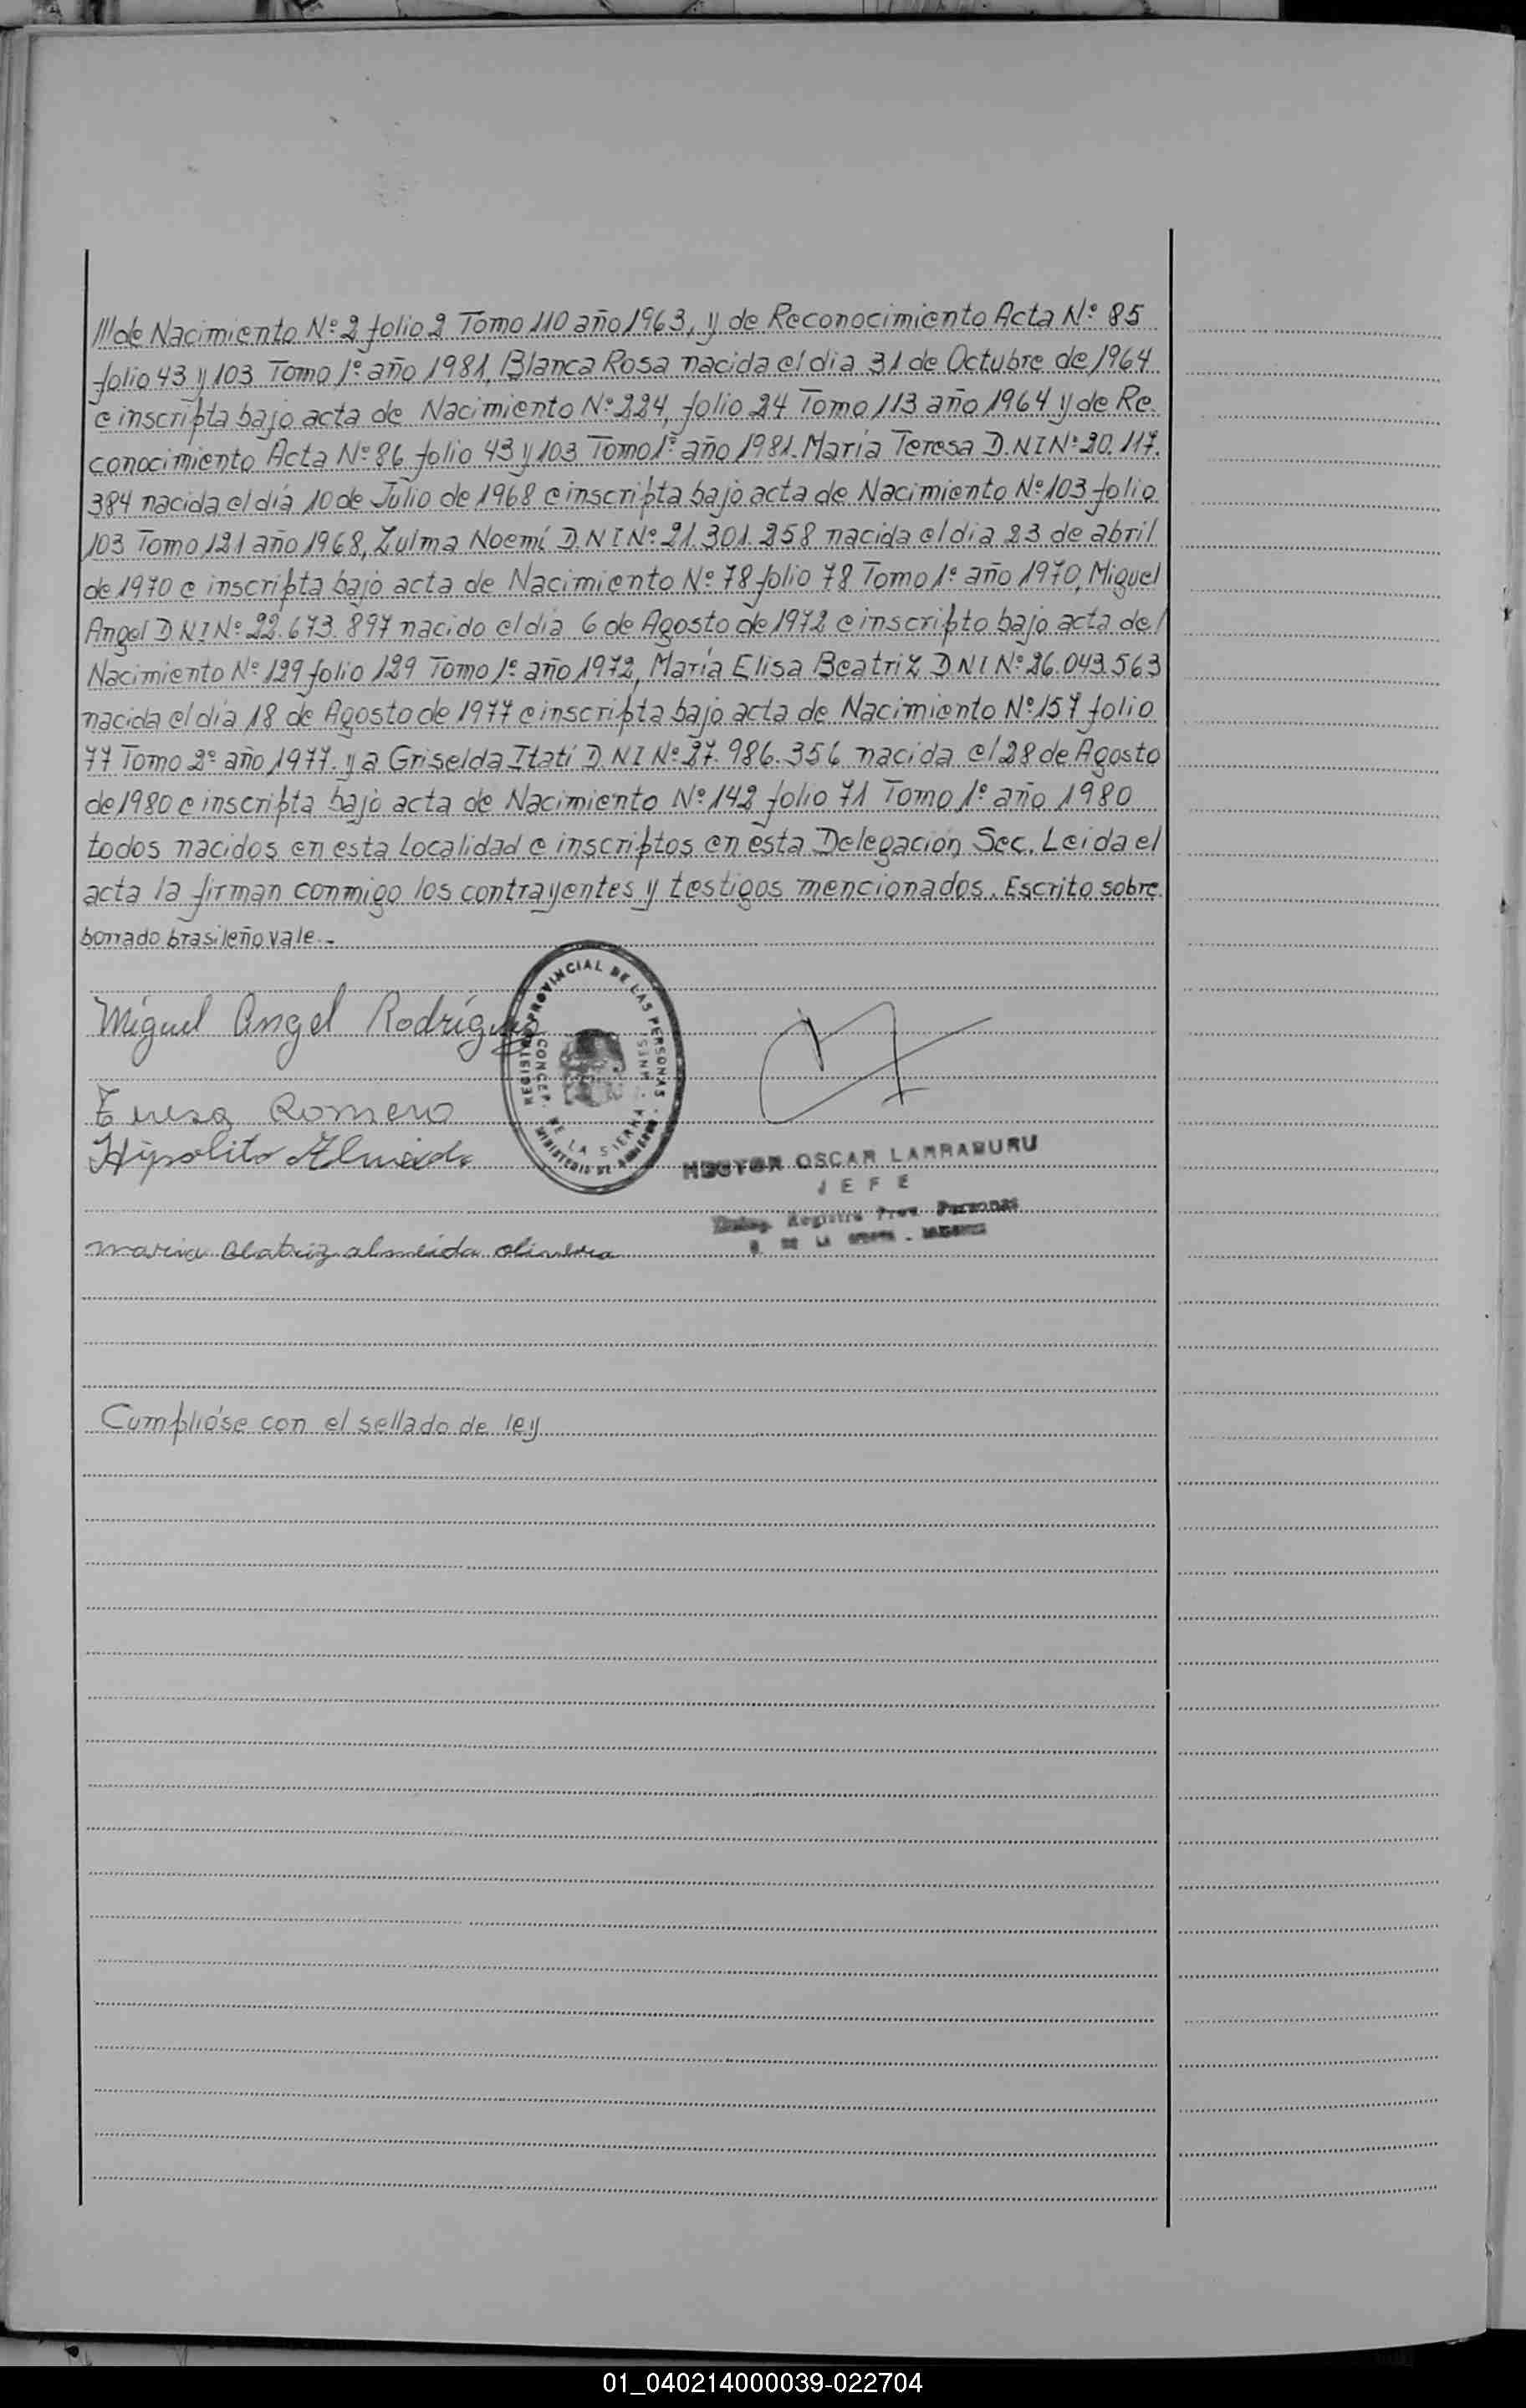 ///de Nacimiento Nº 2 folio 2 Tomo 110 año 1963, y de Reconocimiento Acta Nº 85
folio 43 y 103 Tomo 1º año 1981, Blanca Rosa nacida el dia 31 de Octubre de 1964
e inscripta bajo acta de Nacimiento Nº 224, folio 24 Tomo 113 año 1964 y de Re.
conocimiento Acta Nº 86 folio 43 y 103 Tomo 1º año 1981. María Teresa D.N.I Nº 20.117.
384 nacida el día 10 de Julio de 1968 e inscripta bajo acta de Nacimiento Nº 103 folio
103 Tomo 121 año 1968, Zulma Noemí D.N.I Nº 21.301.258 nacida el dia 23 de abril
de 1970 e inscripta bajo acta de Nacimiento Nº 78 folio 78 Tomo 1º año 1970, Miguel
Angel D.N.I Nº 22.673.897 nacido el día 6 de Agosto de 1972 e inscripto bajo acta de/
Nacimiento Nº 129 folio 129 Tomo 1º año 1972, María Elisa Beatriz D N I Nº 26.043.563
nacida el día 18 de Agosto de 1977 e inscripta bajo acta de Nacimiento Nº 157 folio
77 Tomo 2º año 1977. y a Griselda Itatí D.N I Nº 27.986.356 nacida el 28 de Agosto
de 1980 e inscripta bajo acta de Nacimiento Nº 142 folio 71 Tomo 1º año 1980
todos nacidos en esta Localidad e inscriptos en esta Delegación Sec. Leida el
acta la firman conmigo los contrayentes y testigos mencionados. Escrito sobre
borrado brasileño vale.-
Miguel Angel Rodríguez
REGISTRO PROVINCIAL DE LAS PERSONAS
CONCEP. DE LA SIERRA - MNES.
MINISTERIO DE GOBIERNO
Teresa Romero
Hipolito Almeida
HECTOR OSCAR LARRABURU
JEFE
Deleg. Registro Prov. Personas
C. DE LA SIERRA - MISIONES
maria Beatriz almeida olivera
Cumplióse con el sellado de ley
01_040214000039-022704